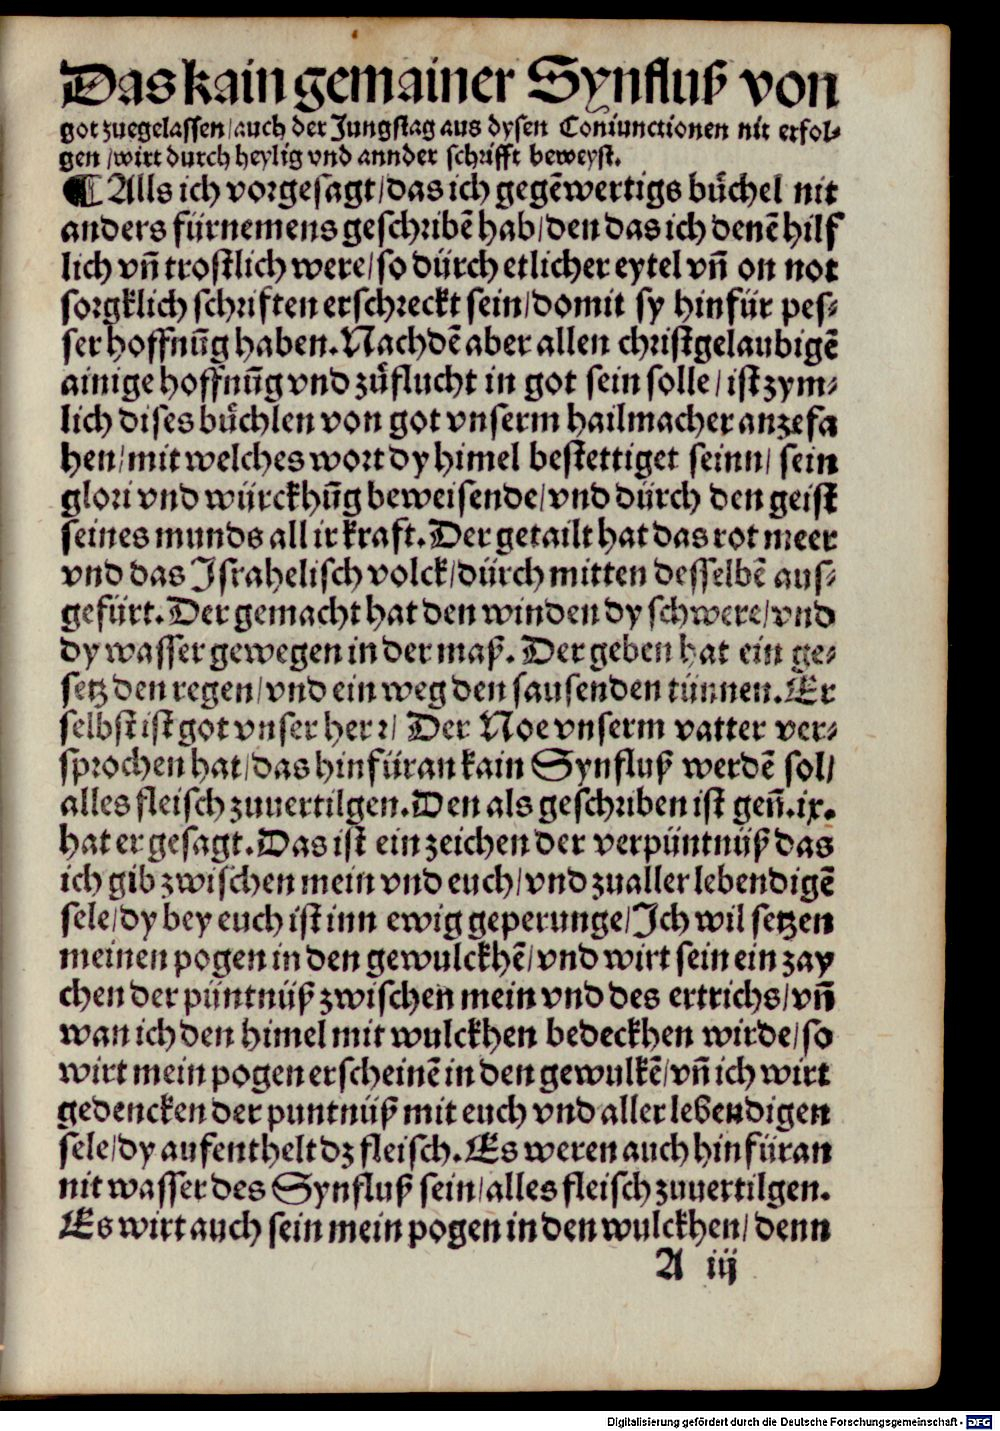 Das kain gemainer Synfluß von
got zuegelassen/auch der Jungstag aus dysen Coniunctionen nit erfol-
gen/wirt durch heylig vnd annder schrifft beweyst.
¶ Alls ich vorgesagt/das ich gegēwertigs bůchel nit
anders fürnemens geschribē hab/den das ich denē hilf
lich vn̄ trostlich were/so dürch etlicher eytel vn̄ on not
sorgklich schriften erschreckt sein/domit sy hinfür pes-
ser hoffnūg haben. Nachdē aber allen christgelaubigē
ainige hoffnūg vnd zůflucht in got sein solle/ist zym-
lich dises bůchlen von got vnserm hailmacher anzefa
hen/mit welches wort dy himel bestettiget seinn/sein
glori vnd würckhūg beweisende/vnd dürch den geist
seines munds all ir kraft. Der getailt hat das rot meer
vnd das Israhelisch volck/dürch mitten desselbē aus-
gefürt. Der gemacht hat den winden dy schwere/vnd
dy wasser gewegen in der maß. Der geben hat ein ge-
setz den regen/vnd ein weg den sausenden tünnen. Er
selbst ist got vnser herr/ Der Noe vnserm vatter ver-
sprochen hat/das hinfüran kain Synfluß werdē sol/
alles fleisch zuuertilgen. Den als geschriben ist gen̄.ix.
hat er gesagt. Das ist ein zeichen der verpüntnüß das
ich gib zwischen mein vnd euch/vnd zualler lebendigē
sele/dy bey euch ist inn ewig geperunge/Ich wil setzen
meinen pogen in den gewulckhē/vnd wirt sein ein zay
chen der püntnüß zwischen mein vnd des ertrichs/vn̄
wan ich den himel mit wulckhen bedeckhen wirde/so
wirt mein pogen erscheinē in den gewulkē/vn̄ ich wirt
gedencken der puntnüß mit euch vnd aller lebendigen
sele/dy aufenthelt dz fleisch. Es weren auch hinfüran
nit wasser des Synfluß sein/alles fleisch zuuertilgen.
Es wirt auch sein mein pogen in den wulckhen/denn
A iij
Digitalisierung gefördert durch die Deutsche Forschungsgemeinschaft - DFG